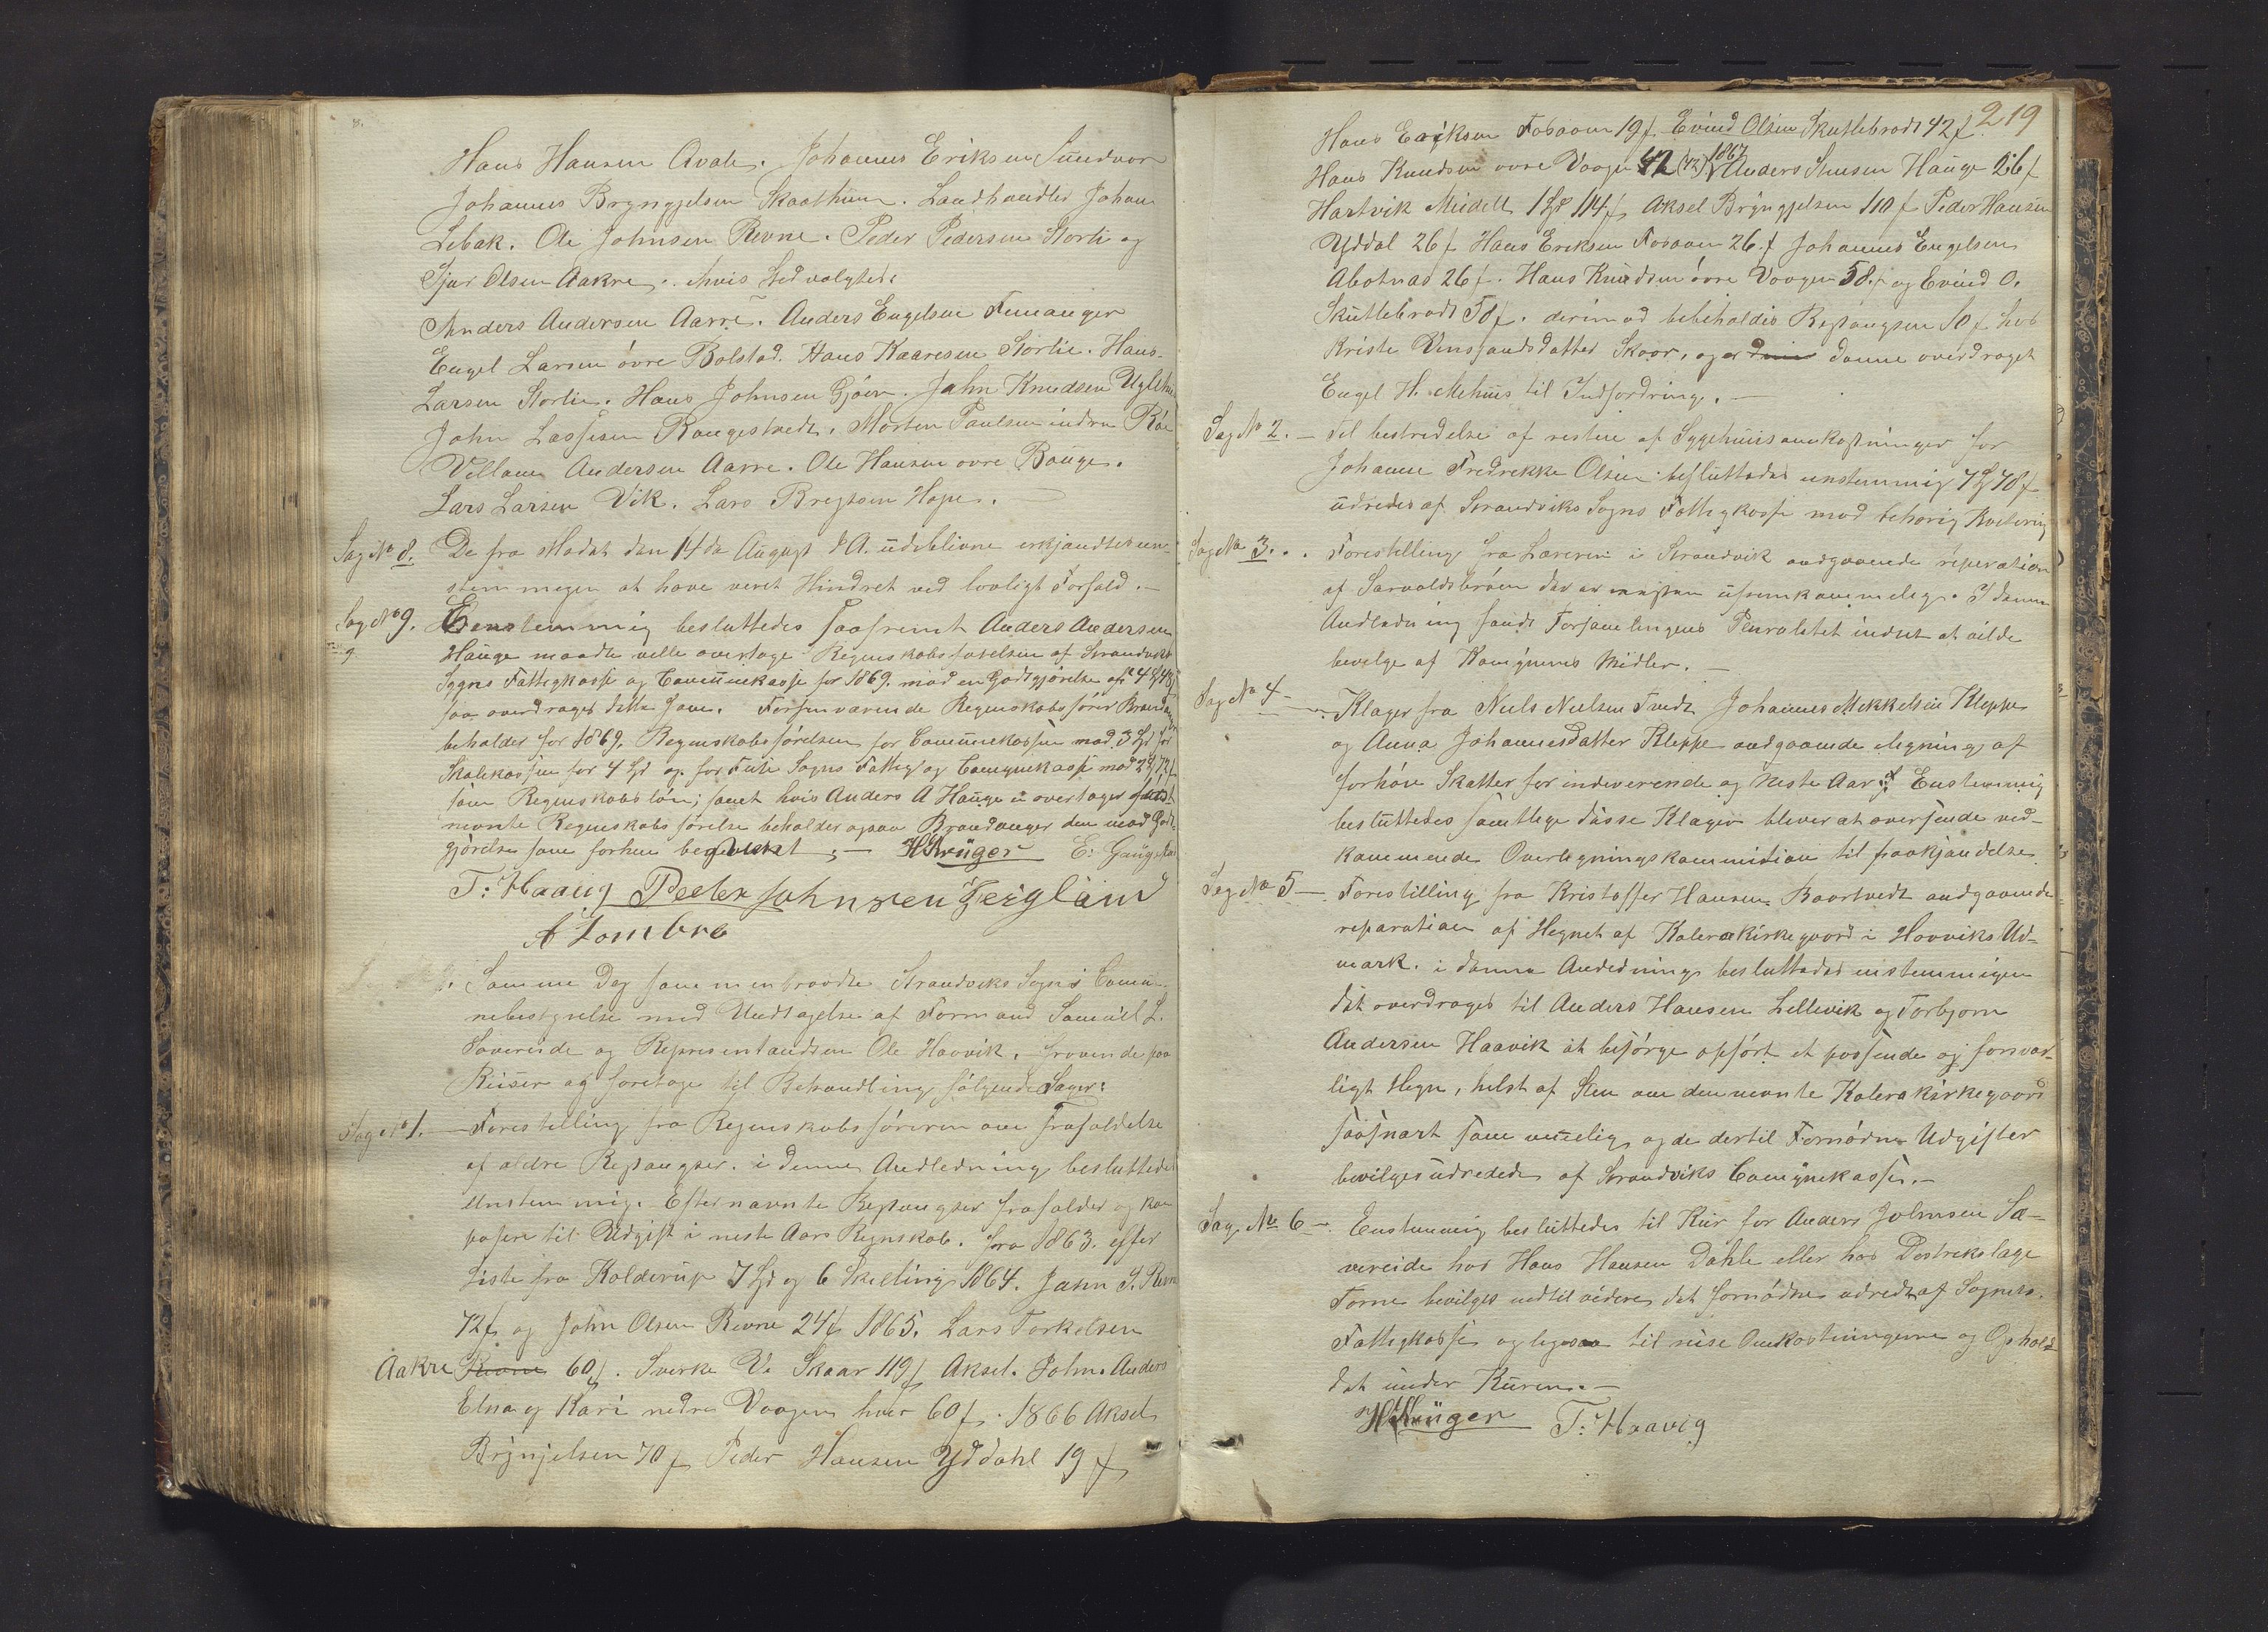 Hans Hansen Qvale. Johannes Eriksen Sundvor
Johannes Bryngjelsen Skaathun. Landhandler Johan
Lebak. Ole Johnsen Revne. Peder Pedersen Storli og
Sjur Olsen Aakre. hvis Sted valgtes:
Anders Andersen Aarre. Anders Engelsen Femanger
Engel Larsen övre Bolstad. Hans Kaaresen Storlie. Hans
Larsen Storlie. Hans Johnsen Gjöen. John Knudsen
John Lassesen Rongestvedt. Morten Paulsen indre Röe
Villam Andersen Aarre. Ole Hansen övre Bouge.
Lars Larsen Vik. Lars Hope.
Sag No 8. De fra Mödet den 14de August d A. udeblivne erkjendtes een-
stemmigen at have veret Hindret ved lovligt Forfald.
Sag No 9. Eenstemmig besluttedes saafremt Anders Andersen
9
Hauge maatte ville overtage Regnskabsförelsen af Strandviks
Sogns Fattigkasse og Comunekasse for 1869. mod en Godtgjörelse af
saa overdrages dette ham. Forhenværende Regnskabsförer
beholder for 1869. Regnskabsförelsen for Comunekassen mod 3 Spd for
Skolekassen for 4 Spd og for Fuse Sogns Fattig og Comunekasse mod
som Regnskabslön; samt hvis Anders A Hauge ei overtager
nevnte Regnskabsförelse beholder ogsaa Brandanger den mod Godt-
gjörelse som forhen begvemt ;— HKrüger E: Gaugstad
T: Haavig Peeter Johnsen Teigland
A Lombre
Samme Dag sammentraadte Strandviks Sogns Comu-
nebestyrelse med Undtagelse af Formand Samuel L.
Sævereide og Representandten Ole Haavik. fraverende paa
Reiser og foretoge til Behandling fölgende Sager:
Sag No 1. — Forestilling fra Regnskabsföreren om frafaldelse
af eldre Restangser. i denne Andledning besluttedes
Enstemmig. Efternævnte Restangser frafaldes og kan
pasere til Udgift i neste Aars Regnskab. fra 1863. efter
Liste fra Kolderup 7 Spd og 6 Skelling 1864. John S. Revne
72 ß og John Olsen Revne 24 ß 1865. Lars Torkelsen
Aakre Revne 60 ß. Sverke V. Skaar 119 ß Aksel. John. Anders
Elna og Kari nedre Vaagen hver 60 ß. 1866 Aksel
Brynjelsen 70 ß Peder Hansen Yddahl 19 ß
219
Hans Eriksen Fosaaen 19 ß. Evind Olsen Skutlebrodt 42 ß.
Hans Knudsen övre Vaagen 42 (42) 1867 Anders Hauge 26 ß
Hartvik Meidell 1 Spd 114 ß Aksel Bryngjelsen 110 ß Peder Hansen
Yddal 26 ß Hans Eriksen Fosaaen 26 ß Johannes Engelsen
Abotnas 26 ß. Hans Knudsen övre Vaagen 58 ß og Evind O.
Skutlebrodt 58 ß. derimod bebeholdes Restangsen 50 ß hos
Kriste Skaar, og er denne overdraget
Engel H. Mehuus til Indfordring. —
Sag No 2. — Til bestridelse af resten af Sygehuusomkostninger for
Johanne Fredrekke Olsen besluttedes enstemmig 7 Spd 78 ß
udredes af Strandviks Sogns Fattigkasse mod behorig Kvitering
Sag No 3. . Forestilling fra Læreren i Strandvik andgaaende reperation
af Sarvoldsbröen der er nesten ufremkommelig. I denne
Andledning fandt Forsamlingens Pluralitet indtet at vilde
bevilge af Komunens Midler. —
Sag No 4 — Klager fra Niels Nielsen Tvedt Johannes Mekkelsen Kleppe
og Anna Johannesdatter Kleppe andgaaende elegning af
forhöie Skatter for indeverende og Neste Aar. Enstemmig
besluttedes samtlige disse Klager bliver at oversende ved-
kommende Overlegningskommision til paakjendelse.
Sag No 5 — Forestilling fra Kristoffer Hansen Baartvedt andgaaende
reparation af Hegnet af Kolerakirkegaard i Haaviks Ud-
mark. i denne Andledning besluttedes enstemmigen
det overdrages til Anders Hansen Lellevik og Torbjorn
Andersen Haavik at besörge opfört et passende og forsvar-
ligt Hegn, helst af Sten om den nevnte Kolera kirkegaard
saasnart som muelig og de dertil Fornödne Udgifter
bevilges udredede af Strandviks Comunekasse. —
Sag No 6 — Enstemmig besluttedes til Kur for Anders Johnsen Sa-
vereide hos Hans Hansen Dahle eller hos Destrekslage
Torne bevilges indtil videre det fornödne udredet af Sognets
Fattigkasse og legesaa til reise Omkostningerne og Ophold-
det under Kuren. —
HKrüger T: Haavig